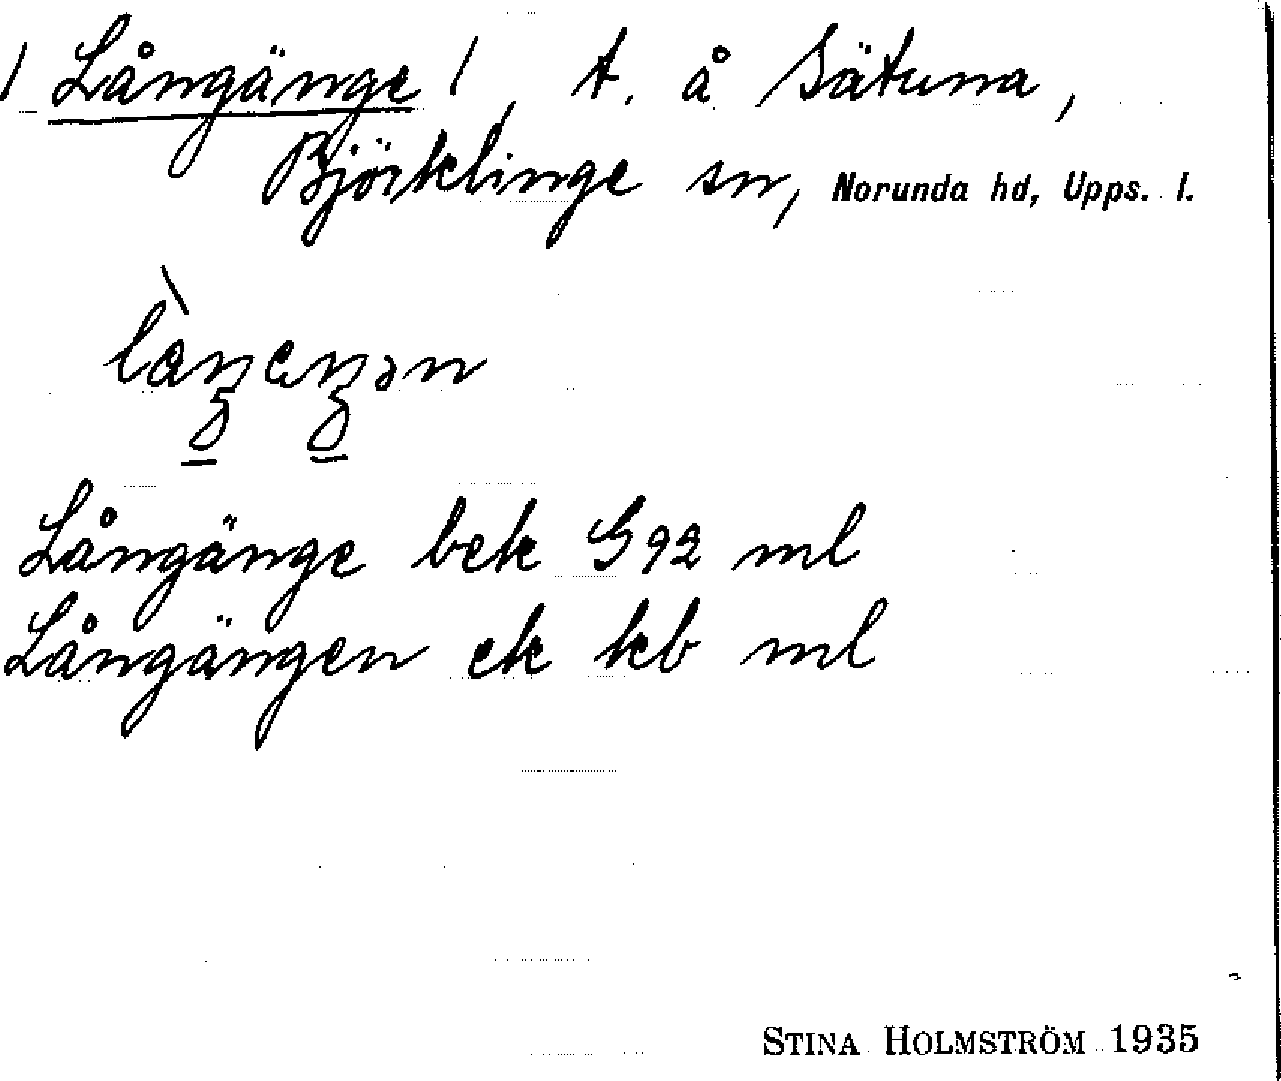 / Långänge /, t. å Sätuna,
Björklinge sn, Norunda hd, Upps. l.
Långänge bek G92 ml
Långängen ek kb ml
STINA HOLMSTRÖM 1935